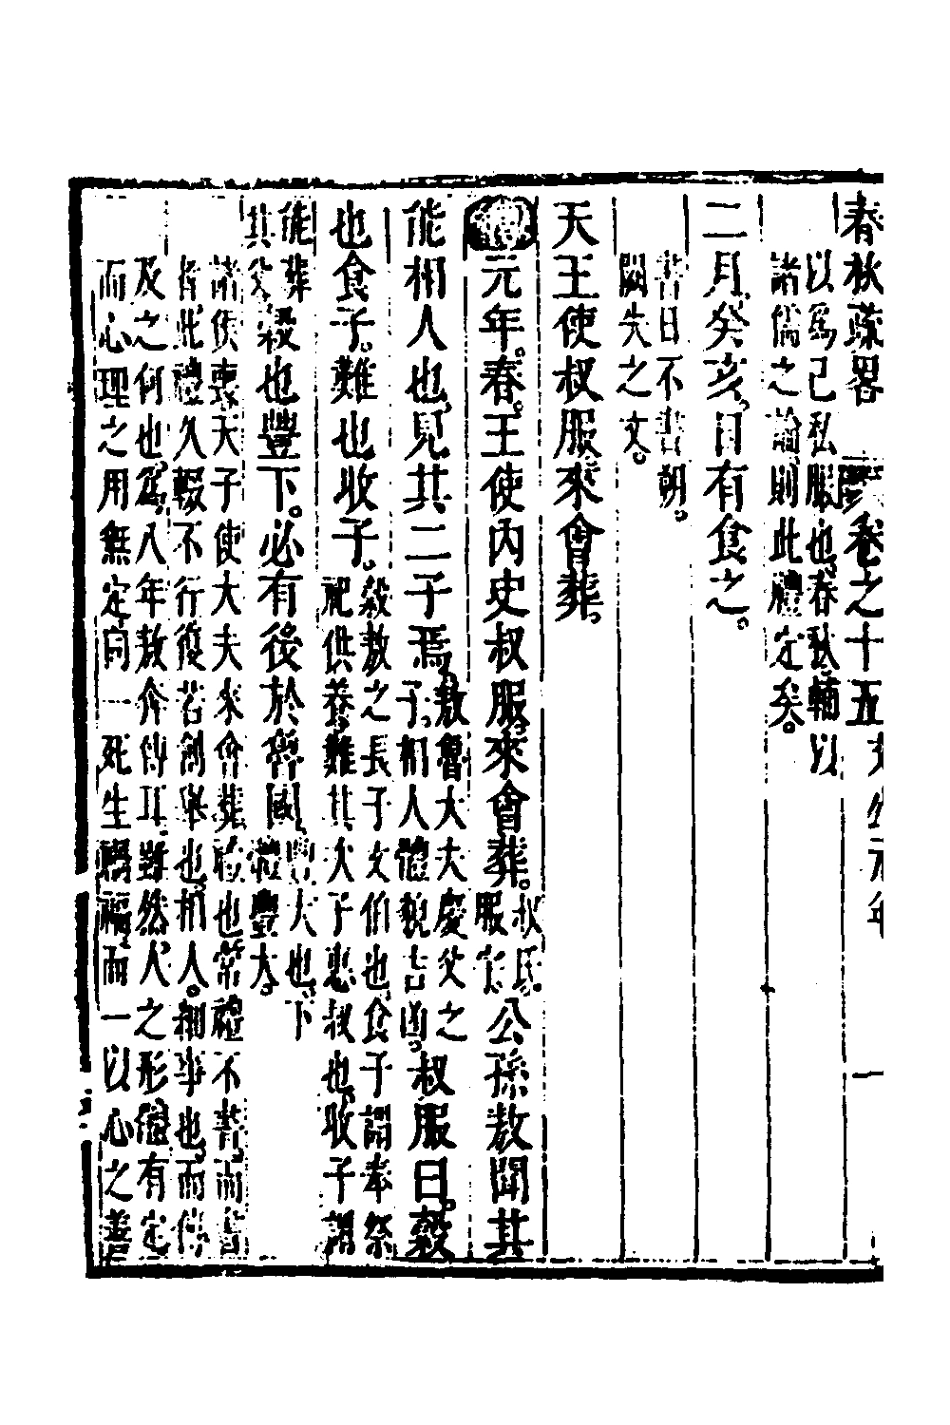 春秋疏畧 卷之十五 文公元年 一
以爲己私服也春秋輔以
諸儒之論則此禮定矣
二月癸亥日有食之
書日不書朔
闕失之文
天王使叔服來會葬
元年春王使內史叔服來會葬
叔氏
服字
公孫敖聞其
能相人也見其二子焉
敖魯大夫慶父之
子相人體貌吉凶
叔服曰穀
也食子難也收子
穀敖之長子文伯也食子謂奉祭
祀供養難其次子惠叔也收子謂
能葬
其父
穀也豐下必有後於魯國
豐大也下
體豐大
諸侯喪天子使大夫來會葬禮也常禮不書而書
者此禮久輟不行復若創舉也相人細事也而傳
及之何也爲八年敖奔傳耳雖然人之形儘有定
而心理之用無定向一死生禍福而一以心之善